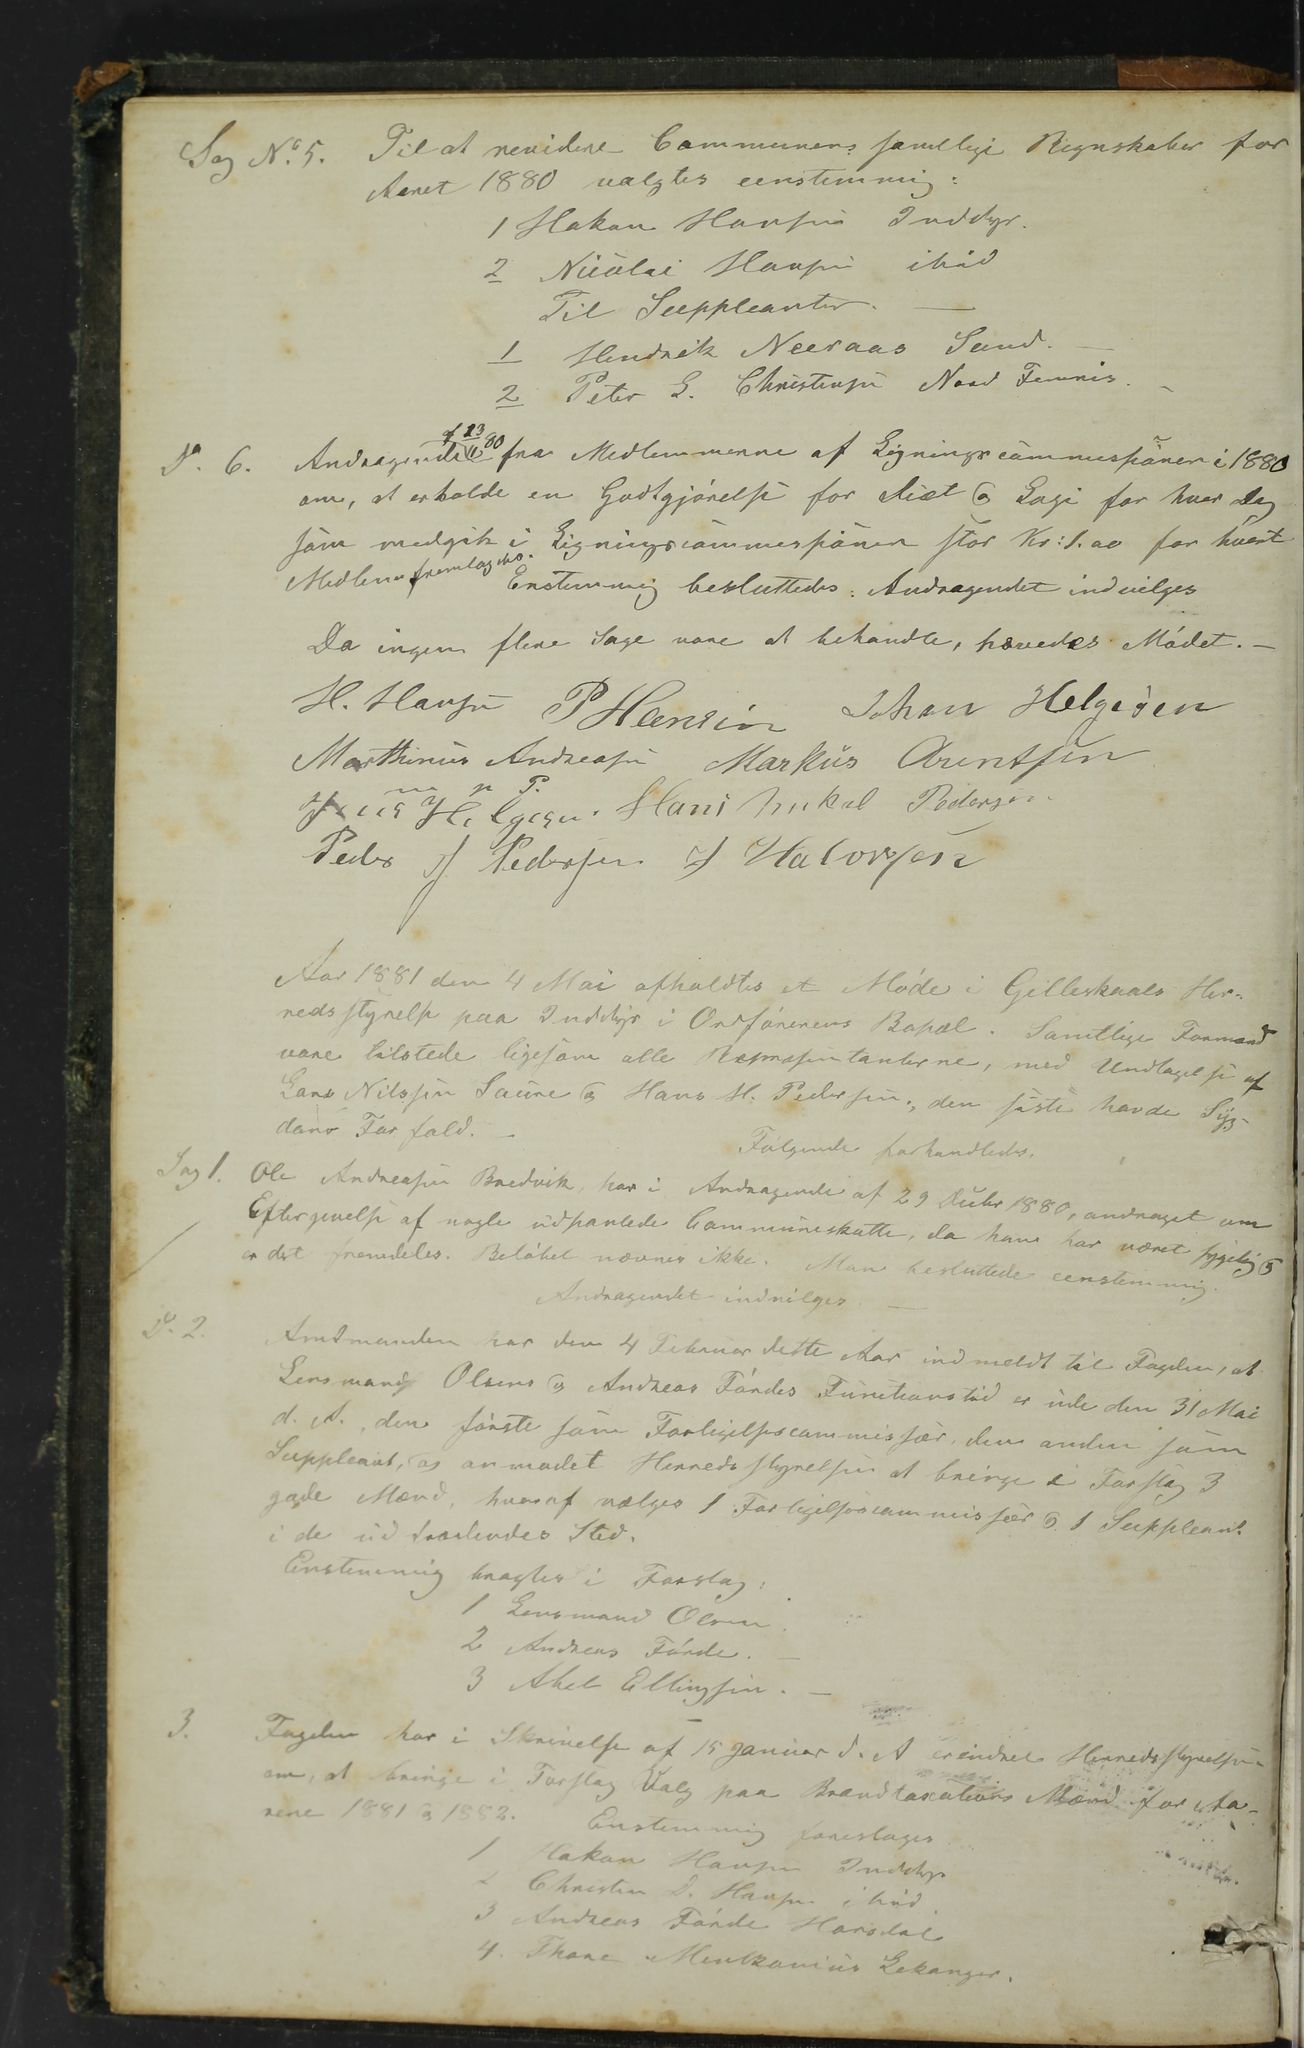 Sag No. 5. Til at revidere Communens samtlige Regnskaber for
Aaret 1880 valgtes eenstemmig:
1 Hakon Hansen Inddyr.
2 Nicolai Hansen ibid
Til Suppleanter. —
1 Hendrik Neeraas Sund. —
2 Peter G. Christensen Nord Fennes. -
Do. 6. Andragende af 23/6 80 fra Medlemmerne af Ligningscommissionen i 1880
om, at erholde en Godtgjörelse for Diæt & Logi for hver Dag
som medgik i Ligningscommissionen stor Kr: 1.00 for hvert
Medlem fremlagdes. Enstemmig besluttedes: Andragendet indvilges
Da ingen flere Sage vare at behandle, hævedes Mödet. —
H. Hansen P Hensen Johan Helgesen
Marthinus Andreasen Markus Arentsen
Helgesen. m p P. Hans Mikal Pedersen.
Peder J Pedersen J Halvorsen
Aar 1881 den 4 Mai afholdtes et Möde i Gilleskaals Her-
redsstyrelse paa Inddyr i Ordförerens Bopæl. Samtlige Formænd
vare tilstede ligesom alle Repræsentanterne, med Undtagelse af
Lars Nilssen Saure & Hans M. Pedersen; den siste havde Syg-
doms Forfald. — Fölgende forhandledes.
Sag 1. Ole Andreasen Bredvik, har i Andragende af 29 Decbr 1880, andraget om
Eftergivelse af nogle udpantede Communeskatte, da han har været sygelig &
er det fremdeles. Belöbet nævnes ikke. Man besluttede eenstemmig.
Andragendet indvilges. —
Do. 2. Amtmanden har den 4 Februar dette Aar indmeldt til Fogden, at
Lensmand Olsens & Andreas Fördes Functionstid er ude den 31 Mai
d. A., den förste som Forligelsescommissær, den anden som
Suppleant, og anmodet Herredsstyrelsen at bringe i Forslag 3
gode Mænd, hvoraf vælges 1 Forligelsescommissær & 1 Suppleant
i de udtrædendes Sted.
Enstemmig bragtes i Forslag:
1 Lensmand Olsen.
2 Andreas Förde. —
3 Abel Ellingsen. —
3. Fogden har i Skrivelse af 15 Januar d. A erindret Herredsstyrelsen
om, at bringe i Forslag Valg paa Brandtaxations Mænd for Aa-
rene 1881 & 1882. Enstemmig foreslages
1 Hakon Hansen Inddyr
2 Christen D. Hansen ibid.
3 Andreas Förde Horsdal
4. Thore Mentzonius Lekanger.